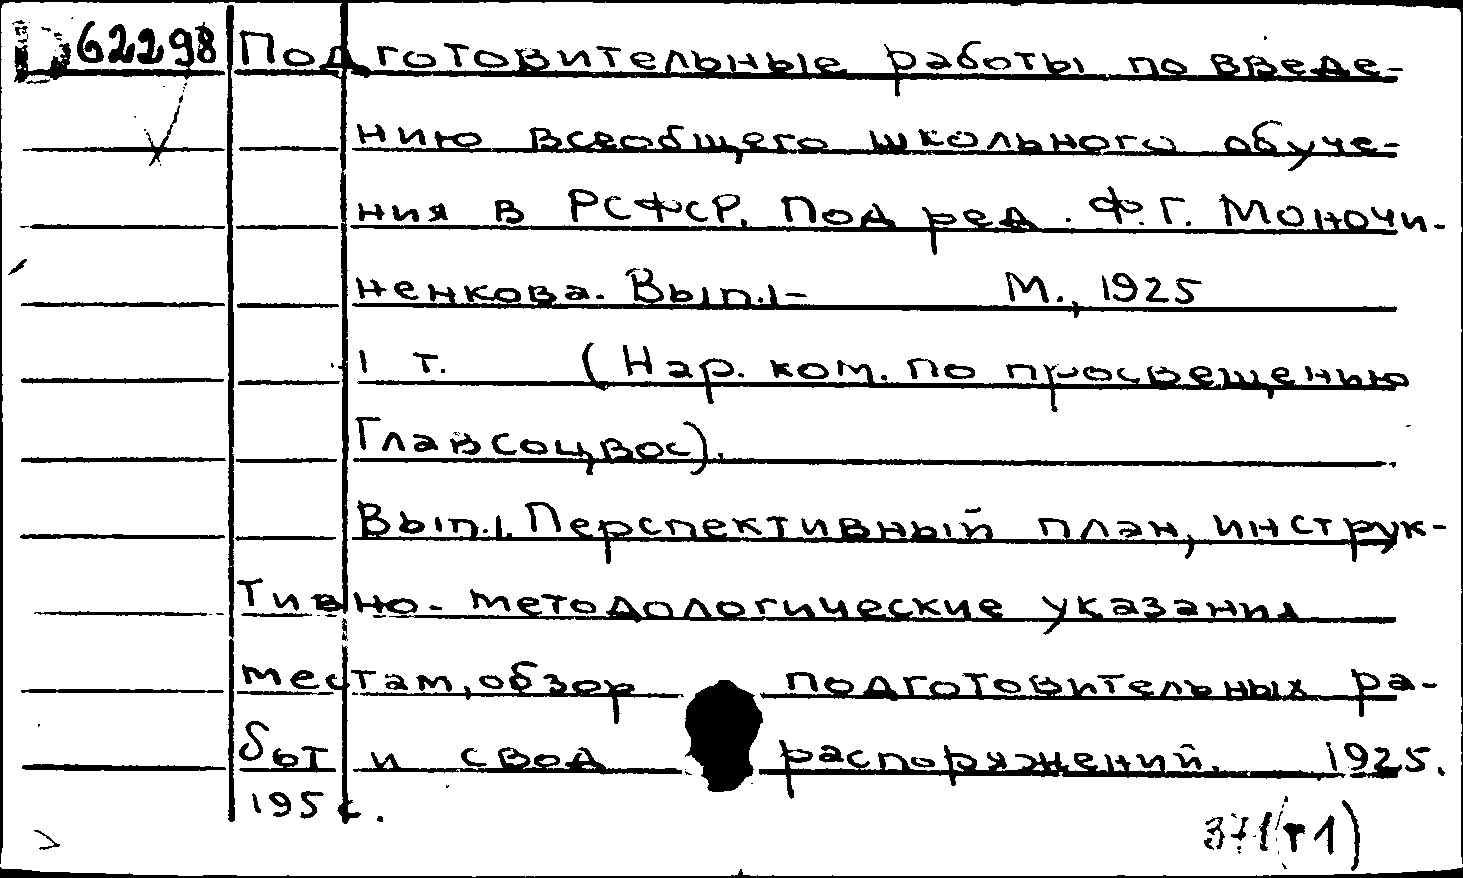 D 62298 Подготовительные работы по введе-
нию всеобщего школьного обуче-
ния в РСФСР. Под ред. Ф.Г. Моночи-
ненкова. Вып.1- М., 1925
1 т. (Нар. ком. по просвещению
Главсоцвос).
Вып.1. Перспективный план, инструк-
тивно-методологические указания
местам, обзор подготовительных ра-
бот и свод распоряжений. 1925.
195 с.
371(т1)